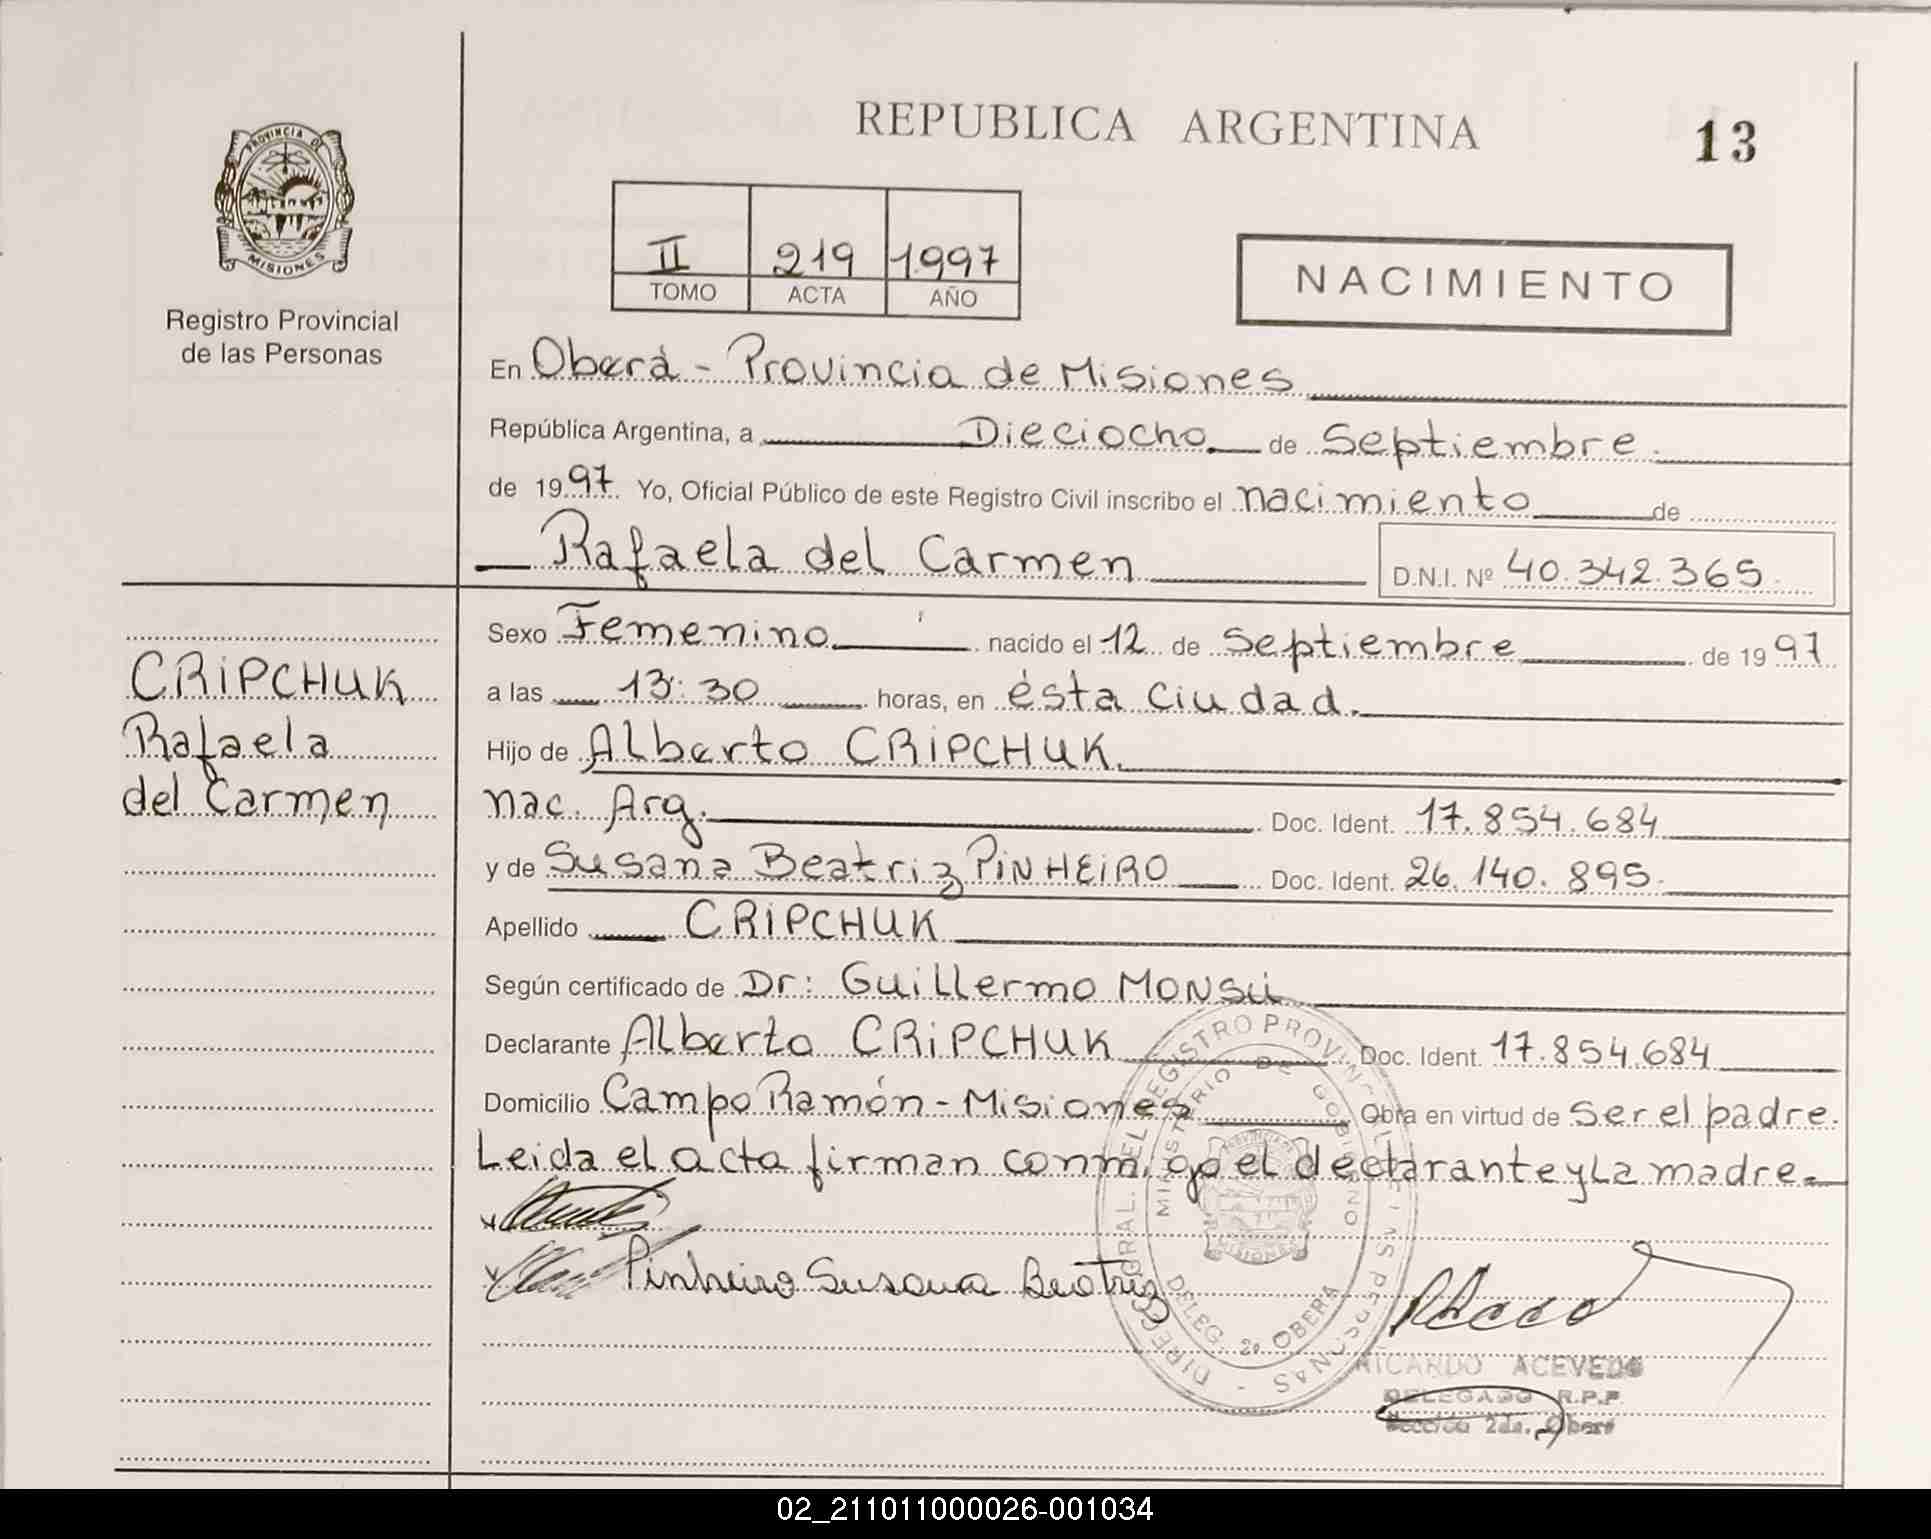 REPUBLICA ARGENTINA
13
PROVINCIA DE
MISIONES
Registro Provincial
de las Personas
II 219 1997
TOMO ACTA AÑO
NACIMIENTO
En Oberá - Provincia de Misiones
República Argentina, a Dieciocho de Septiembre
de 1997 Yo, Oficial Público de este Registro Civil inscribo el nacimiento de
Rafaela del Carmen D.N.I. Nº 40.342.365
CRIPCHUK
Rafaela
del Carmen
Sexo Femenino nacido el 12 de Septiembre de 1997
a las 13:30 horas, en ésta Ciudad.
Hijo de Alberto CRIPCHUK.
nac. Arg. Doc. Ident. 17.854.684
y de Susana Beatriz PINHEIRO Doc. Ident. 26.140.895
Apellido CRIPCHUK
Según certificado de Dr: Guillermo MONSU
Declarante Alberto CRIPCHUK Doc. Ident. 17.854.684
Domicilio Campo Ramón - Misiones Obra en virtud de ser el padre.
Leida el acta firman conmigo el declarante y La madre.
Pinheiro Susana Beatriz
MINISTERIO DE GOBIERNO
MISIONES
DELEG. 2º OBERA
RICARDO ACEVEDO
DELEGADO R.P.P.
Sección 2da. Oberá
02_211011000026-001034